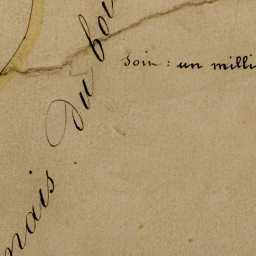 soin : un milli
nais. du boi